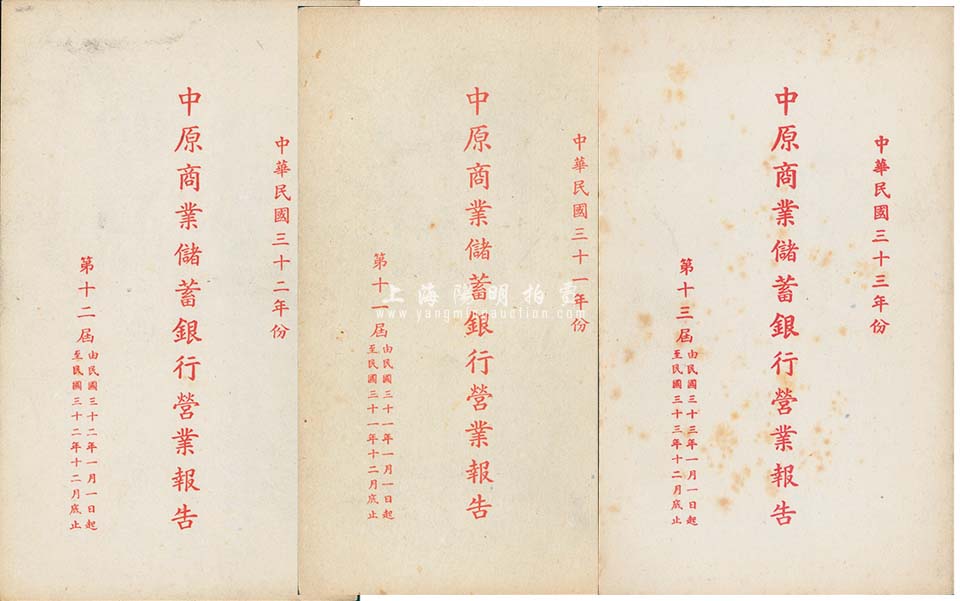 中華民國三十二年份
中原商業儲蓄銀行營業報告
第十二屆
由民國三十二年一月一日起
至民國三十二年十二月底止
中華民國三十一年份
中原商業儲蓄銀行營業報告
第十一屆
由民國三十一年一月一日起
至民國三十一年十二月底止
中華民國三十三年份
中原商業儲蓄銀行營業報告
第十三屆
由民國三十三年一月一日起
至民國三十三年十二月底止
上海陽明拍賣
www.yangmingauction.com